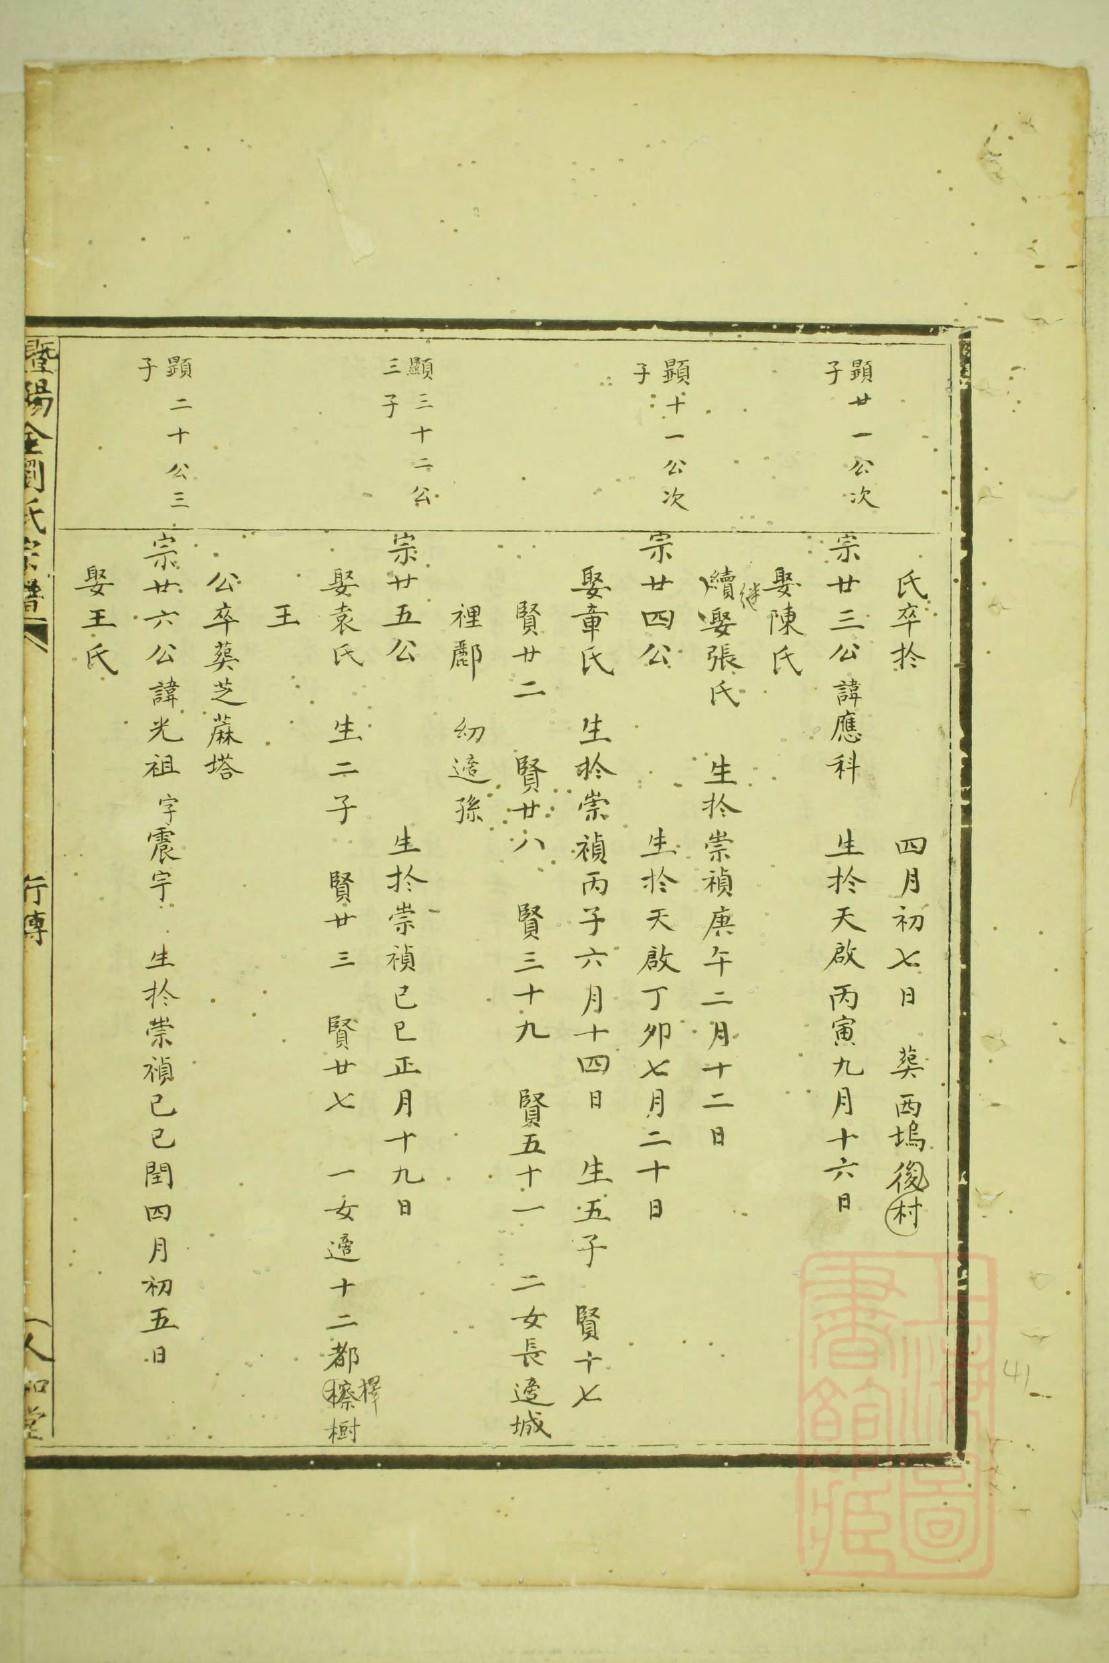 氏卒扵 四月初七日 葬西塢後村
顯廿一公次
子
宗廿三公諱應科 生扵天啟丙寅九月十六日
娶陳氏
繼
續娶張氏 生扵崇禎庚午二月十二日
顯十一公次
子
宗廿四公 生扵天啟丁卯七月二十日
娶章氏 生扵崇禎丙子六月十四日 生五子 賢十七
賢廿二 賢廿八 賢三十九 賢五十一 二女長適城
裡酈 幼適孫
顯三十二公
三子
宗廿五公 生扵崇禎己巳正月十九日
娶袁氏 生二子 賢廿三 賢廿七 一女適十二都樑樹
王
公卒葬芝蔴塔
顯二十公三
子
宗廿六公諱光祖字震宇 生扵崇禎己巳閏四月初五日
娶王氏
暨陽金澗氏宗譜
行傳
人和堂
上海圖書館藏
41